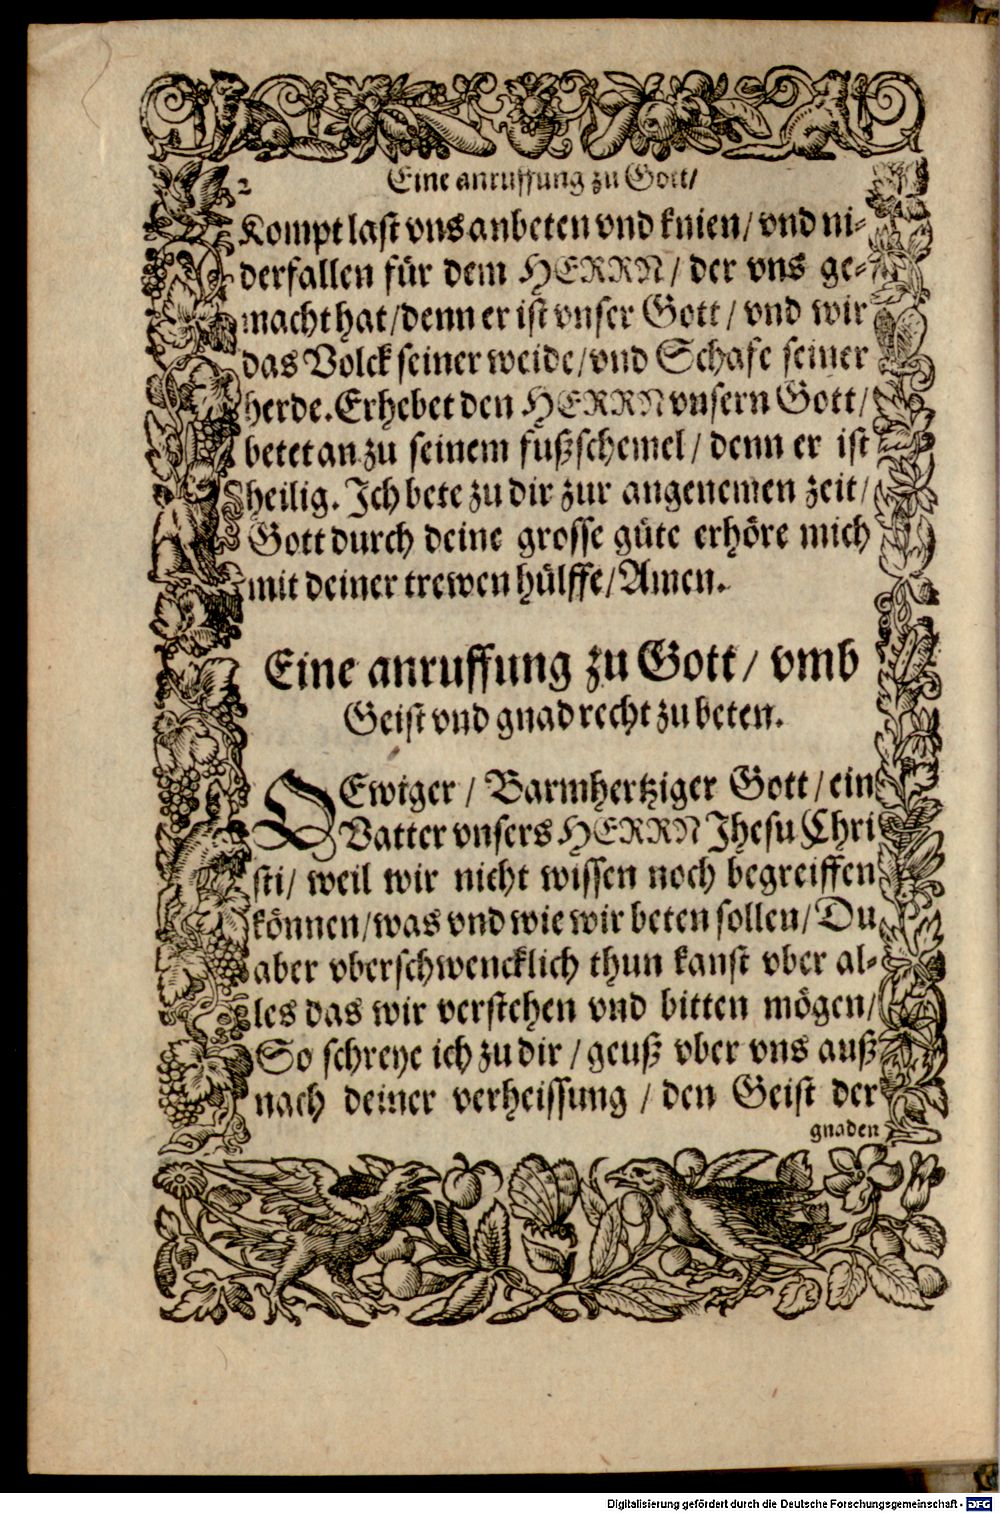 2
Eine anruffung zu Gott/
Kompt last vns anbeten vnd knien/ vnd ni-
derfallen für dem HERRN/ der vns ge-
macht hat/ denn er ist vnser Gott/ vnd wir
das Volck seiner weide/ vnd Schafe seiner
herde. Erhebet den HERRN vnsern Gott/
betet an zu seinem fußschemel/ denn er ist
heilig. Ich bete zu dir zur angenemen zeit/
Gott durch deine grosse güte erhöre mich
mit deiner trewen hülffe/ Amen.
Eine anruffung zu Gott/ vmb
Geist vnd gnad recht zu beten.
O Ewiger/ Barmhertziger Gott/ ein
Vatter vnsers HERRN Jhesu Chri
sti/ weil wir nicht wissen noch begreiffen
können/ was vnd wie wir beten sollen/ Du
aber vberschwencklich thun kanst vber al-
les das wir verstehen vnd bitten mögen/
So schreye ich zu dir/ geuß vber vns auß
nach deiner verheissung/ den Geist der
gnaden
Digitalisierung gefördert durch die Deutsche Forschungsgemeinschaft - DFG